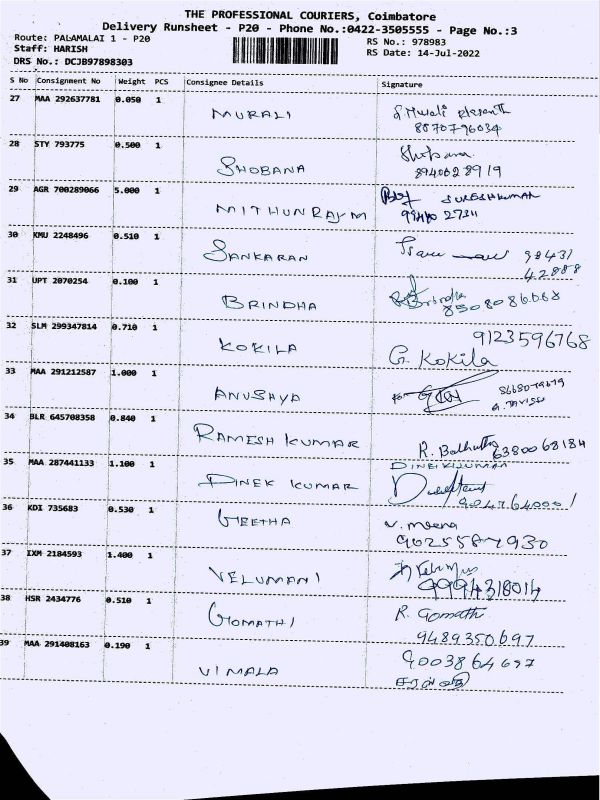 THE PROFESSIONAL COURIERS, Coimbatore
Delivery Runsheet - P20 - Phone No.:0422-3505555 - Page No.:3
Route: PALAMALAI 1 - P20
RS No.: 978983
Staff: HARISH
RS Date: 14-Jul-2022
DRS No.: DCJB97898303
S No Consignment No Weight PCS Consignee Details Signature
27 MAA 292637781 0.050 1 MURALI
8870796034
28 STY 793775 0.500 1 SHOBANA Shobana
8940628919
29 AGR 700289066 5.000 1 MITHUNRAJ M SURESHKUMAR
30 KMU 2248496 0.510 1 SANKARAN 98431
42888
31 UPT 2070254 0.100 1 BRINDHA Brindha
8508086668
32 SLM 299347814 0.710 1 KOKILA 9123596768
G. Kokila
33 MAA 291212587 1.000 1 ANUSHYA
34 BLR 645708358 0.840 1 RAMESH KUMAR R.
6380068184
35 MAA 287441133 1.100 1 DINEK KUMAR DINEKKUMAR
36 KDI 735683 0.530 1 GEETHA V. meena
9025587930
37 IXM 2184593 1.400 1 VELUMANI
9994318014
38 HSR 2434776 0.510 1 GOMATHI R. Gomathi
9489350697
39 MAA 291408163 0.190 1 VIMALA 9003864697